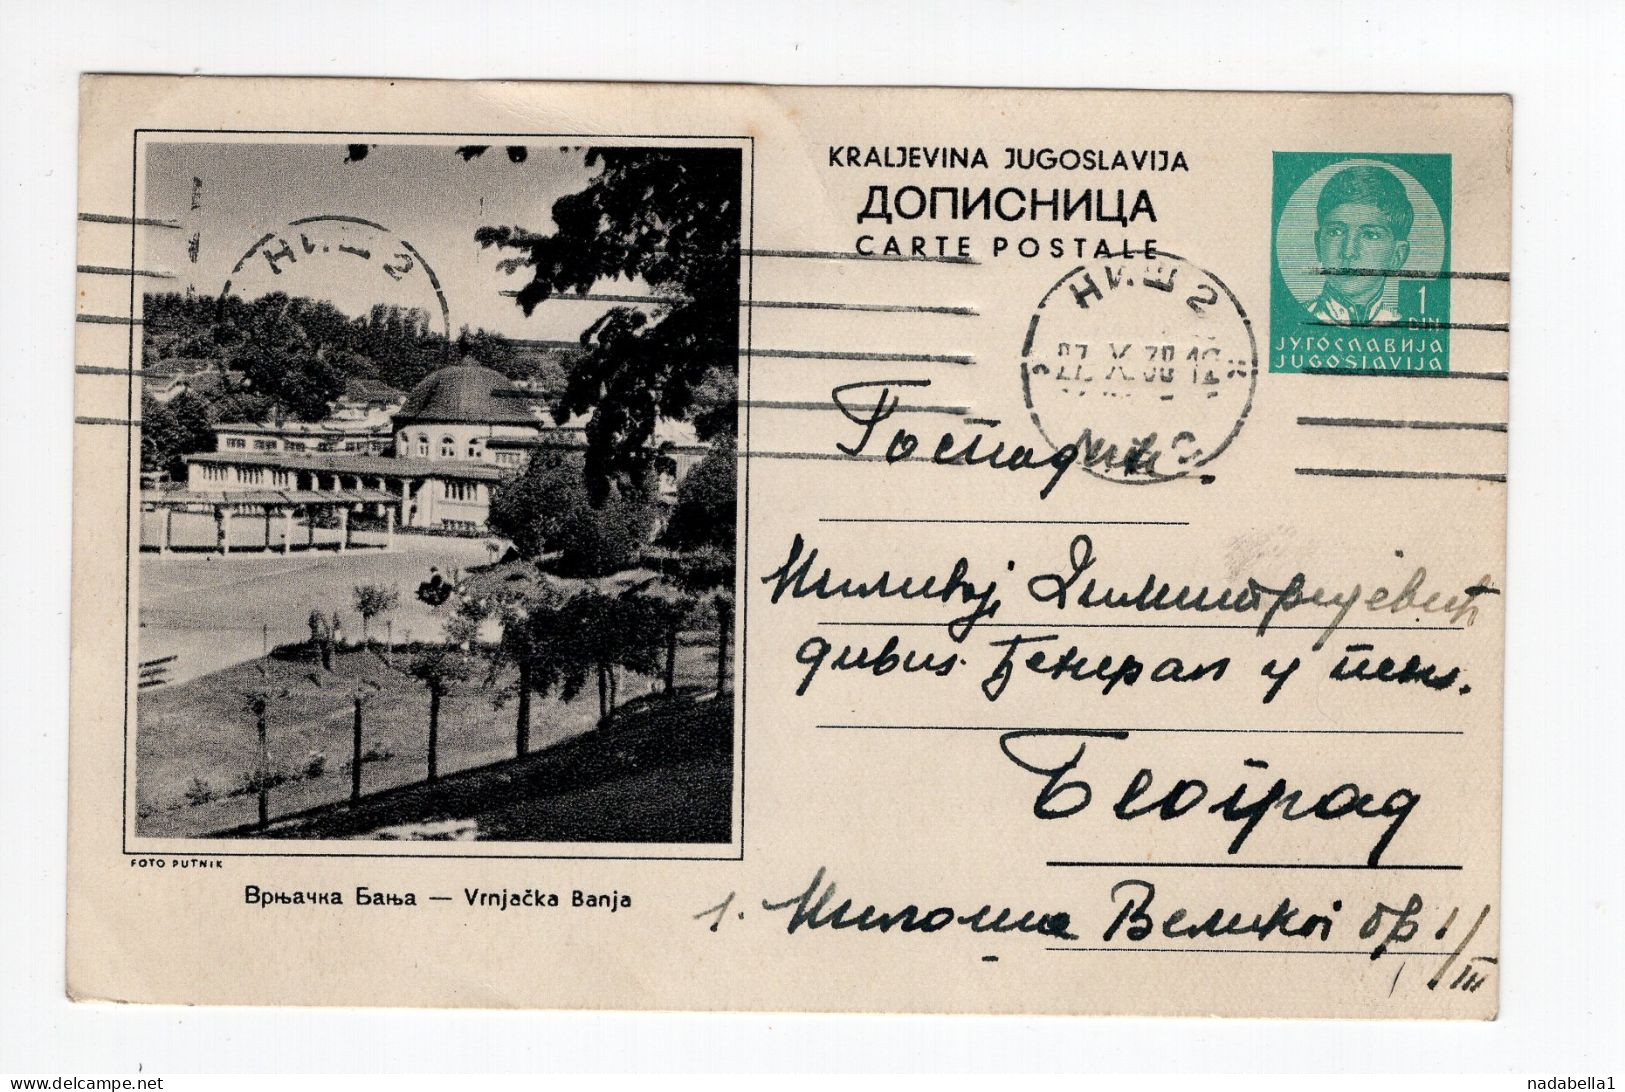 KRALJEVINA JUGOSLAVIJA
ДОПИСНИЦА
CARTE POSTALE
1
DIN
ЈУГОСЛАВИЈА
JUGOSLAVIJA
НИШ 2
НИШ 2
27. X. 38
Господин
Миливој Димитријевић
дивиз. ђенерал у пенз.
Београд
Милоша Великог бр 1/III
FOTO PUTNIK
Врњачка Бања — Vrnjačka Banja
nadabella1